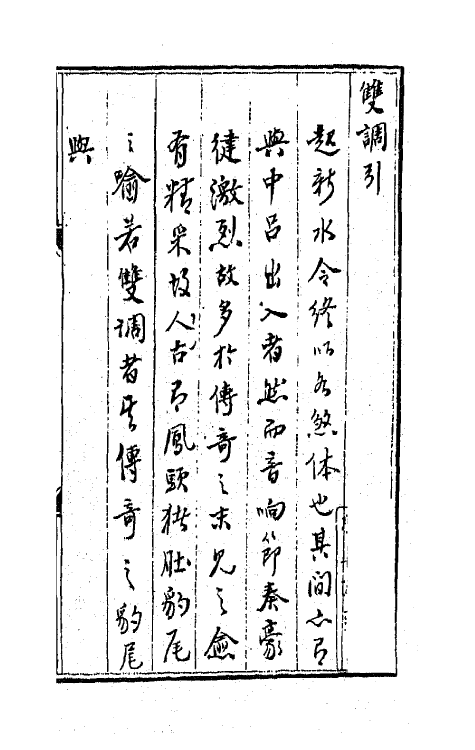 雙調引
起新水令終以各煞体也其间亦有
與中呂出入者然而音响節奏豪
健激烈故多於傳奇之末見之愈
有精采故人古有鳳頭猪肚豹尾
之喻若雙調者其傳奇之豹尾
與